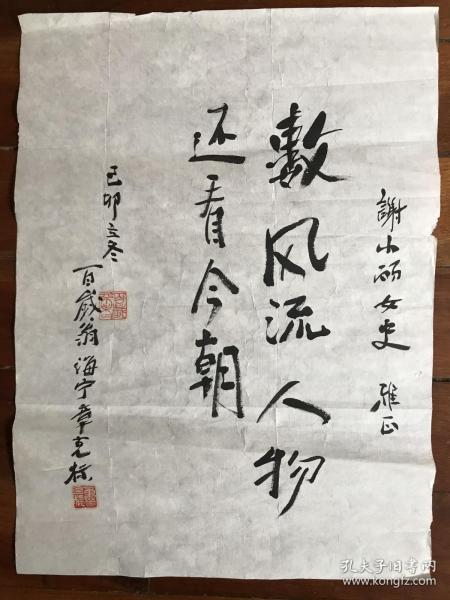 謝小硕女史 雅正
數风流人物
还看今朝
己卯立冬
百歲翁海宁章克标
孔夫子旧书网
www.kongfz.com